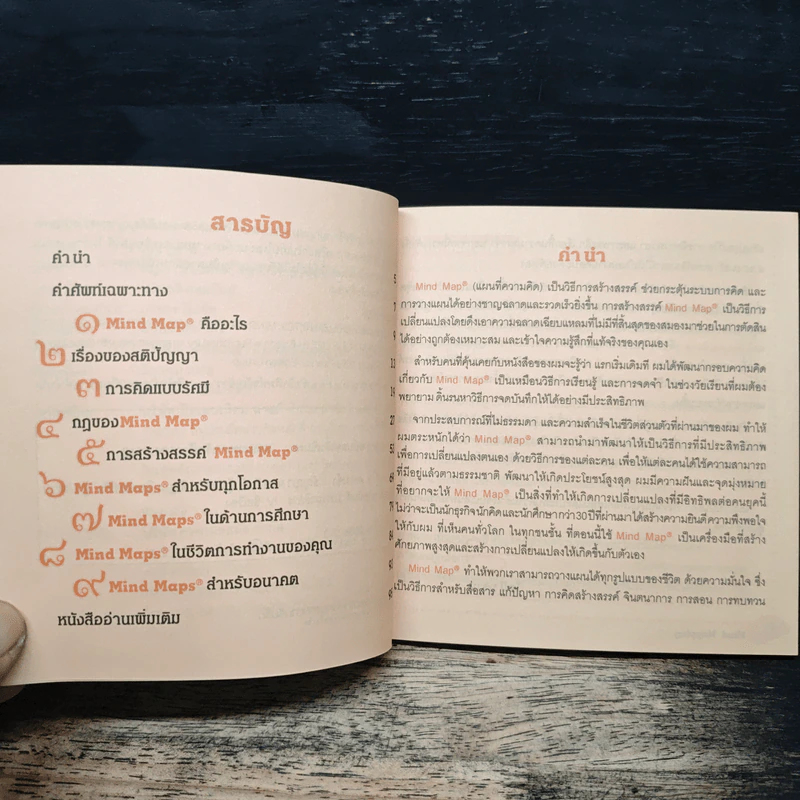 สารบัญ
คำนำ
คำศัพท์เฉพาะทาง
๑ Mind Map® คืออะไร
๒ เรื่องของสติปัญญา
๓ การคิดแบบรัศมี
๔ กฎของ Mind Map®
๕ การสร้างสรรค์ Mind Map®
๖ Mind Maps® สำหรับทุกโอกาส
๗ Mind Maps® ในด้านการศึกษา
๘ Mind Maps® ในชีวิตการทำงานของคุณ
๙ Mind Maps® สำหรับอนาคต
หนังสืออ่านเพิ่มเติม
คำนำ
Mind Map® (แผนที่ความคิด) เป็นวิธีการสร้างสรรค์ ช่วยกระตุ้นระบบการคิด และ
การวางแผนได้อย่างชาญฉลาดและรวดเร็วยิ่งขึ้น การสร้างสรรค์ Mind Map® เป็นวิธีการ
เปลี่ยนแปลงโดยดึงเอาความฉลาดเฉียบแหลมที่ไม่มีที่สิ้นสุดของสมองมาช่วยในการตัดสิน
ได้อย่างถูกต้องเหมาะสม และเข้าใจความรู้สึกที่แท้จริงของคุณเอง
สำหรับคนที่คุ้นเคยกับหนังสือของผมจะรู้ว่า แรกเริ่มเดิมที ผมได้พัฒนากรอบความคิด
เกี่ยวกับ Mind Map® เป็นเหมือนวิธีการเรียนรู้ และการจดจำ ในช่วงวัยเรียนที่ผมต้อง
พยายาม ดิ้นรนหาวิธีการจดบันทึกให้ได้อย่างมีประสิทธิภาพ
จากประสบการณ์ที่ไม่ธรรมดา และความสำเร็จในชีวิตส่วนตัวที่ผ่านมาของผม ทำให้
ผมตระหนักได้ว่า Mind Map® สามารถนำมาพัฒนาให้เป็นวิธีการที่มีประสิทธิภาพ
เพื่อการเปลี่ยนแปลงตนเอง ด้วยวิธีการของแต่ละคน เพื่อให้แต่ละคนได้ใช้ความสามารถ
ที่มีอยู่แล้วตามธรรมชาติ พัฒนาให้เกิดประโยชน์สูงสุด ผมมีความฝันและจุดมุ่งหมาย
ที่อยากจะให้ Mind Map® เป็นสิ่งที่ทำให้เกิดการเปลี่ยนแปลงที่มีอิทธิพลต่อคนยุคนี้
ไม่ว่าจะเป็นนักธุรกิจนักคิดและนักศึกษากว่า30ปีที่ผ่านมาได้สร้างความยินดีความพึงพอใจ
ให้กับผม ที่เห็นคนทั่วโลก ในทุกชนชั้น ที่ตอนนี้ใช้ Mind Map® เป็นเครื่องมือที่สร้าง
ศักยภาพสูงสุดและสร้างการเปลี่ยนแปลงให้เกิดขึ้นกับตัวเอง
Mind Map® ทำให้พวกเราสามารถวางแผนได้ทุกรูปแบบของชีวิต ด้วยความมั่นใจ ซึ่ง
เป็นวิธีการสำหรับสื่อสาร แก้ปัญหา การคิดสร้างสรรค์ จินตนาการ การสอน การทบทวน